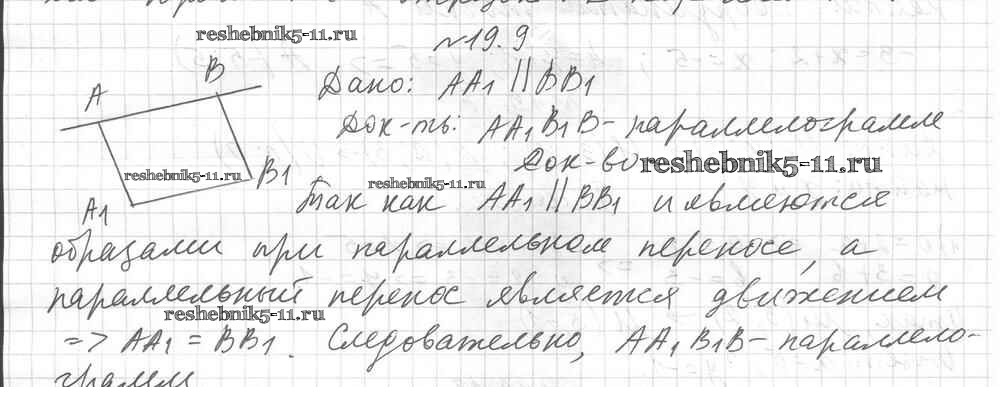 reshebnik5-11.ru
№19.9
B
A
Дано: AA1 || BB1
Док-ть: AA1B1B - параллелограмм
Док-во reshebnik5-11.ru
reshebnik5-11.ru
reshebnik5-11.ru
B1
A1
Так как AA1 || BB1 и являются
образами при параллельном переносе, а
параллельный перенос является движением
reshebnik5-11.ru
=> AA1 = BB1. Следовательно, AA1B1B - параллело-
грамм